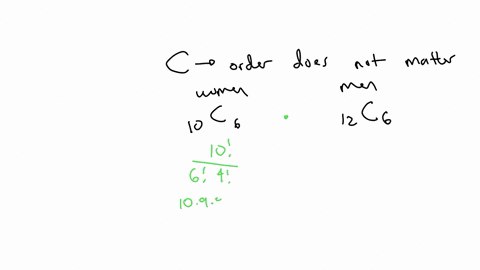 C → order does not matter
women men
₁₀C₆ · ₁₂C₆
10!
6! 4!
10.9.